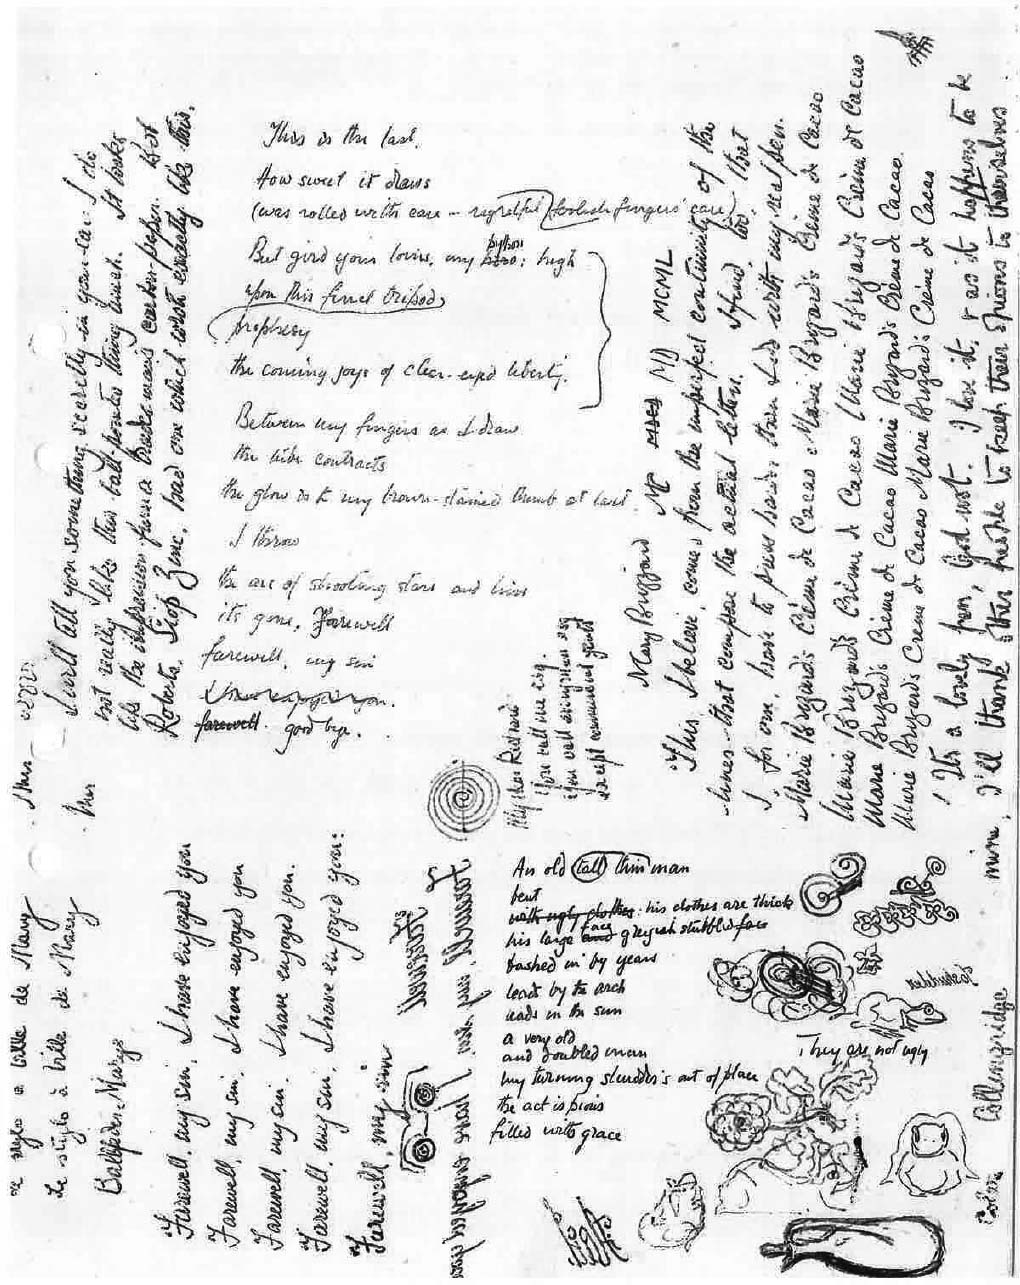 This is the last.
How sweet it draws
(was rolled with care – rightful (foolish fingers' care)
But gird your loins, my python: high
upon this final tripod,
prophesy
the coming joys of clear-eyed liberty.
Between my fingers as I draw
the tube contracts
the glow is to my brown-stained thumb at last.
I throw
the arc of shooting stars and
its gone. Farewell
farewell, my sin
I have enjoyed you.
farewell. good bye.
An old (tall) thin man
bent
with ugly clothes: his clothes are thick
his large face and greyish stubbled face
bashed in by years
leads by the arch
in the sun
a very old
and doubled man
my turning shoulder's out of place
the act is pious
filled with grace
They are not ugly
I will tell you something secretly in your ear. I do
not really like this ball-pointed thing much. It looks
like the impression from a trades-man's carbon paper. But
Roberta, had one which wrote exactly like this.
My dear Richard
You call me
Mary Brizzard MC MD MCML
This, I believe, comes from the imperfect continuity of the
lines that compose the actual letters. I find, too, that
I, for one, have to press harder than I do with my real pen.
Marie Brizard's Crème de Cacao Marie Brizard's Crème de Cacao
Marie Brizard's Crème de Cacao (Marie Brizard's Crème de Cacao
Marie Brizard's Crème de Cacao Marie Brizard's Crème de Cacao.
Marie Brizard's Crème de Cacao Marie Brizard's Crème de Cacao
It's a lovely pen, God wot. I love it, & as it happens to be
mine, I'll thank other people to keep their opinions to themselves
Le stylo à bille de Mary
Le stylo à bille de Mary
Ballpden Marys
Farewell, my sin, I have enjoyed you
Farewell, my sin, I have enjoyed you
Farewell, my sin, I have enjoyed you.
Farewell, my sin, I have enjoyed you:
Farewell, my sin
Farewell
Farewell, my sin, I have enjoyed you
Collingridge